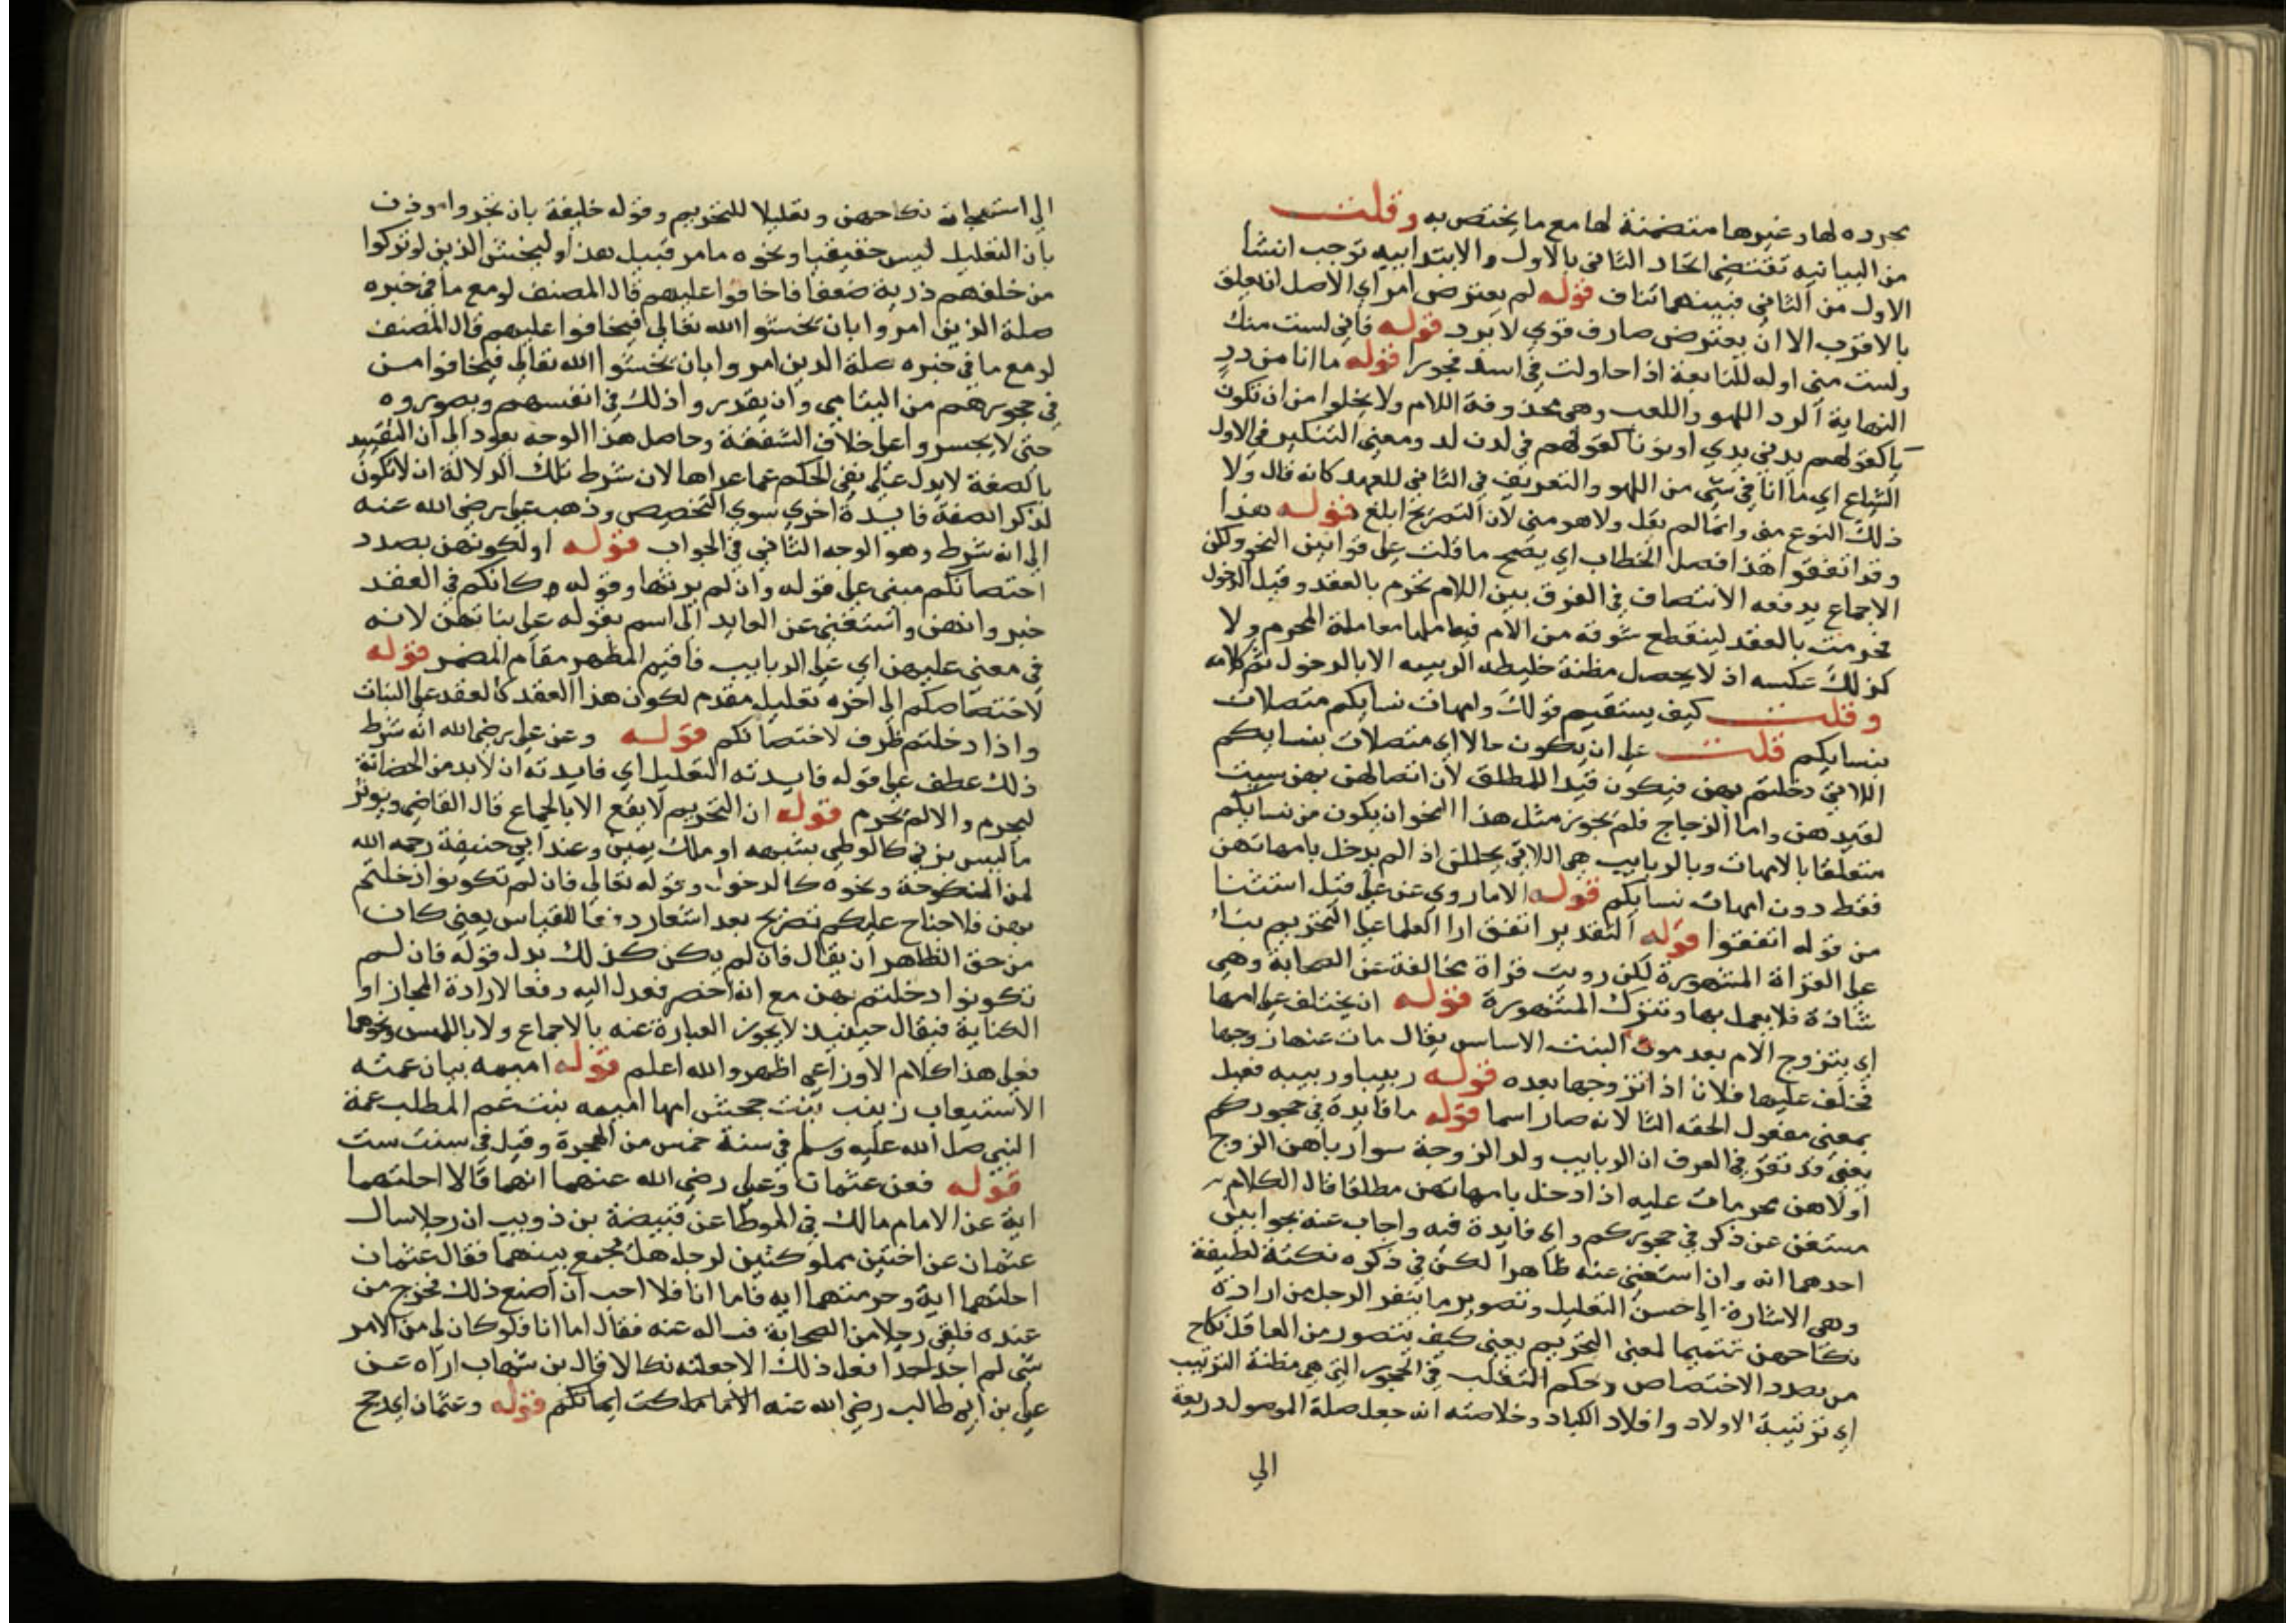 مجرده لها وغيرها متضمنة لها مع ما يختص به وقلت
من البيانيه تقتضي اتحاد الثاني بالاول والابتداييه توجب انشا
الاول من الثاني فبينهما تناف قوله لم يعترض امر اي الاصل ان يعلق
بالاقرب الا ان يعترض صارف قوي لا يرد قوله فاني لست منك
ولست مني اوله للنابغة اذا حاولت في اسد فجورا قوله ما انا من دد
النهاية الدد اللهو واللعب وهي محذوفة اللام ولا يخلوا من ان تكون
يا كقولهم يد في يدي او نونا كقولهم في لدن لد ومعني التنكير في الاول
الشياع اي ما انا في شي من اللهو والتعريف في الثاني للعهد كانه قال ولا
ذلك النوع مني وانما لم يقل ولا هو مني لان التصريح ابلغ قوله هذا
وقد اتفقوا هذا فصل الخطاب اي يصح ما قلت علي قوانين النحو ولكن
الاجماع يدفعه الانتصاف في الفرق بين اللام تحرم بالعقد وقبل الدخول
تحرمت بالعقد لينقطع شوقه من الام فيعاملها معاملة المحرم ولا
كذلك عكسه اذ لا يحصل مظنة خليطه الربيبه الا بالدخول تم كلامه
وقلت كيف يستقيم قولك وامهات نسايكم متصلات
بنسايكم قلت علي ان يكون حالا اي متصلات بنسايكم
اللاتي دخلتم بهن فيكون قيدا للمطلق لان اتصالهن بهن سببت
لقيدهن واما الزجاج فلم يجوز مثل هذا النحو ان يكون من نسايكم
متعلقا بالامهات وبالربايب هي اللاتي يحللن اذا لم يدخل بامهاتهن
فقط دون امهات نسايكم قوله الا ما روي عن علي قيل استثنا
من قوله اتفقوا قوله التقدير اتفق ارا العلما علي التحريم بنا
علي القراة المشهورة لكن رويت قراة مخالفة عن الصحابة وهي
شاذة فلا يعمل بها وتترك المشهورة قوله ان يختلف علي امها
اي يتزوج الام بعد موت البنت الاساس يقال مات عنها زوجها
فخلف عليها فلان اذا تزوجها بعده قوله ربيبا وربيبه فعيل
بمعني مفعول الحقه التا لانه صار اسما قوله ما فايدة في حجوركم
يعني قد تقرر في العرف ان الربايب ولد الزوجة سوا رباهن الزوج
او لا هن محرمات عليه اذا دخل بامهاتهن مطلقا فالكلام
مستغن عن ذكر في حجوركم واي فايدة فيه واجاب عنه بجوابين
احدهما انه وان استغني عنه ظاهرا لكن في ذكره نكتة لطيفة
وهي الاشارة الي حسن التعليل وتصوير ما ينفر الرجل من ارادة
نكاحهن تتميما لمعني التحريم يعني كيف يتصور من العاقل نكاح
من بصدد الاختصاص وحكم التغلب في الحجور التي هي مظنة الترتيب
اي ترتيبة الاولاد وافلاد الكباد وخلاصته انه جعل صلة الموصول دريعة
الي
الي استهجانه نكاحهن وتعليلا للتحريم وقوله خليقة بان تجروا
بان التعليل ليس حقيقيا ونحوه ما مر قبيل هذا وليخش الذين لو تركوا
من خلفهم ذرية ضعفا فاخافوا عليهم قال المصنف لو مع ما في خبره
صلة الذين امروا بان يخشوا الله تعالي فيخافوا عليهم قال المصنف
لو مع ما في خبره صلة الدين امروا بان يخشوا الله تعالي فيخافوا من
في حجورهم من اليتامي وان يقدروا ذلك في انفسهم وبصوروه
حتي لا يجسروا علي خلاف الشفقة وحاصل هذا الوجه يعود الي ان التقييد
بالصفة لا يدل علي نفي الحكم عما عداها لان شرط تلك الدلالة ان لا تكون
لذكر الصفة فايدة اخري سوي التخصيص وذهب علي رضي الله عنه
الي انه شرط وهو الوجه الثاني في الجواب قوله او لكونهن بصدد
احتضانكم مبني علي قوله وان لم يربها وقوله وكانكم في العقد
خبر وانهن واستغني عن العايد الي اسم بقوله علي بناتهن لانه
في معني عليهن اي علي الربايب فاقيم المظهر مقام المضمر قوله
لاختصاصكم الي اخره تعليل مقدم لكون هذا العقد كالعقد علي البنات
واذا دخلتم ظرف لاختصانكم قوله وعن علي رضي الله انه شرط
ذلك عطف علي قوله فايدته التعليل اي فايدته ان لابد من الحضانة
ليحرم والا لم تحرم قوله ان التحريم لا يقع الا بالجماع قال القاضي ويوثر
ما ليس بزني كالوطي بشبهه او ملك يمين وعند ابي حنيفة رحمه الله
لمن المنكوحة ونحوه كالدخول وقوله تعالي فان لم تكونوا دخلتم
بهن فلا جناح عليكم تصريح بعد اشعار دفعا للقياس يعني كان
من حق الظاهر ان يقال فان لم يكن كذلك بدل قوله فان لم
تكونوا دخلتم بهن مع انه اخصر فعدل اليه دفعا لارادة المجاز او
الكناية فيقال حينيذ لا يجوز العبارة عنه بالاجماع ولا باللمس ونحوهما
فعلي هذا كلام الاوزاعي اظهر والله اعلم قوله اميمه بيان عمته
الاستيعاب زينب بنت جحش امها اميمه بنت عم المطلب عمة
النبي صلي الله عليه وسلم في سنة خمس من الهجرة وقيل في سنت ست
قوله فعن عثمان وعلي رضي الله عنهما انهما قالا احلتهما
اية عن الامام مالك في الموطا عن قبيصة بن ذويب ان رجلا سال
عثمان عن اختين مملوكتين لرجل هل يجمع بينهما فقال عثمان
احلتهما اية وحرمتهما ايه فاما انا فلا احب ان اصنع ذلك فخرج من
عنده فلقي رجلا من الصحابة فساله عنه فقال اما انا فلو كان لي من الامر
شي لم اجد احدا فعل ذلك الا جعلته نكالا قال بن شهاب اراه عن
علي بن ابي طالب رضي الله عنه الا ما ملكت ايمانكم قوله وعثمان اي رجح